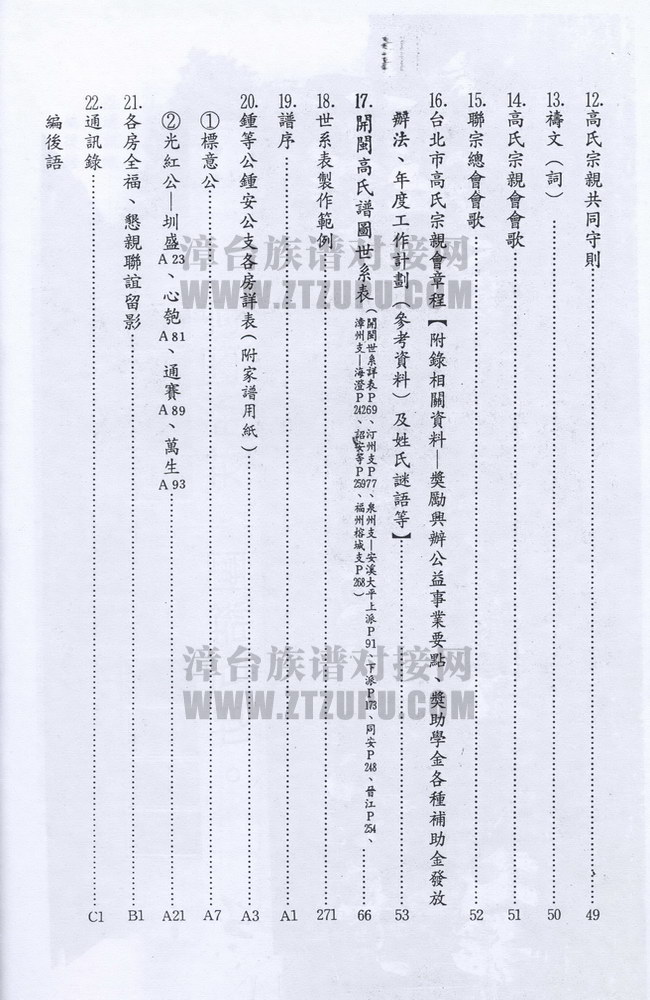 12.高氏宗親共同守則……49
13.禱文（詞）……50
14.高氏宗親會會歌……51
15.聯宗總會會歌……52
16.台北市高氏宗親會章程【附錄相關資料—獎勵興辦公益事業要點、獎助學金各種補助金發放
辦法、年度工作計劃（參考資料）及姓氏謎語等】……53
17.開閩高氏譜圖世系表（開閩世系詳表P69、汀州支P77、泉州支—安溪大平上派P91、下派P173、同安P248、晉江P254、
漳州支—海澄P242、詔安等P259、福州榕城支P268）……66
18.世系表製作範例……271
19.譜序……A1
20.鍾等公鍾安公支各房詳表（附家譜用紙）……A3
①標意公……A7
②光紅公—圳盛A23、心匏A81、通賽A89、萬生A93……A21
21.各房全福、懇親聯誼留影……B1
22.通訊錄……C1
編後語
漳台族谱对接网
WWW.ZTZUPU.COM
漳台族谱对接网
WWW.ZTZUPU.COM